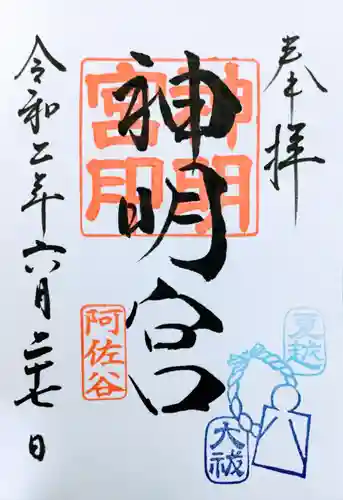 奉拝
神明宮
神明宮印
阿佐谷
令和二年六月二十七日
夏越
大祓